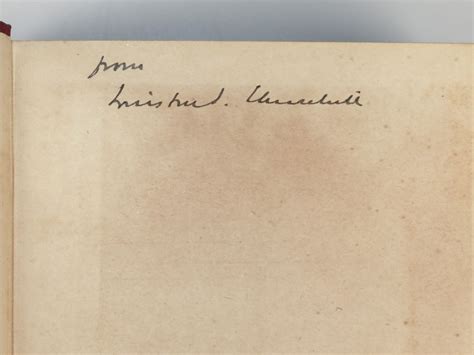 from
Winston S. Churchill